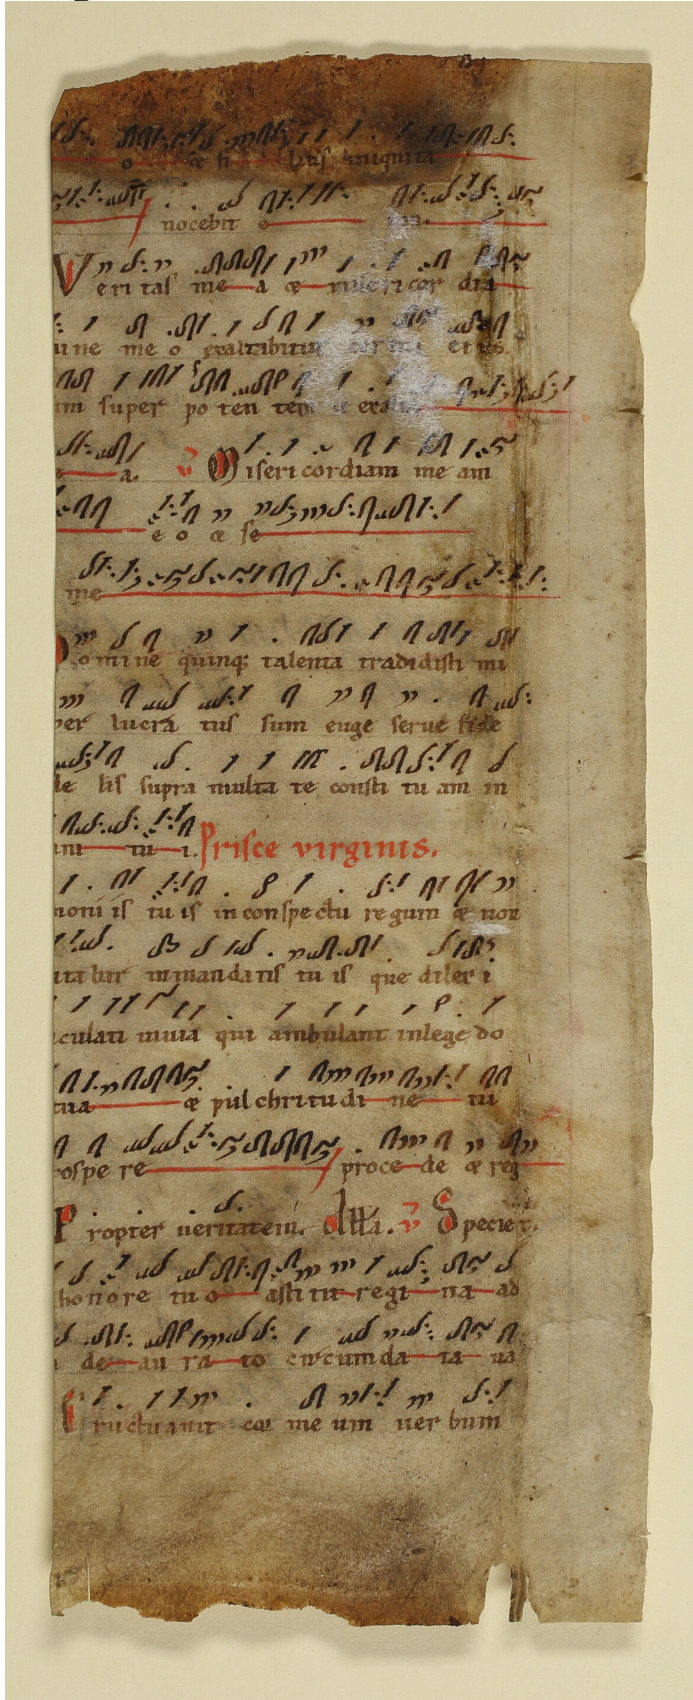 o & fi lius iniquita
nocebit e
Veritas me a & misericor dia
mi ne me o exaltabitur cor nu eius
um super po ten tem &
a. ℣ Miseri cordiam me am
e o & se
me
Domine quinq; talenta tradidisti mi
per lucra tus sum euge serue fide
de lis supra multa te consti tu am in
ni tu i. Prisce virginis.
moni is tu is in conspectu regum & non
ita bar in mandatis tu is que dilexi
culati in uia qui ambulant in lege do
tua & pul chri tu di ne tu
rospe re proce de & reg
Propter ueritatem. Alla. ℣ Specie t
honore tu o asti tit regi na ad
de au ra to circum da ta ua
Eructauit cor me um uer bum